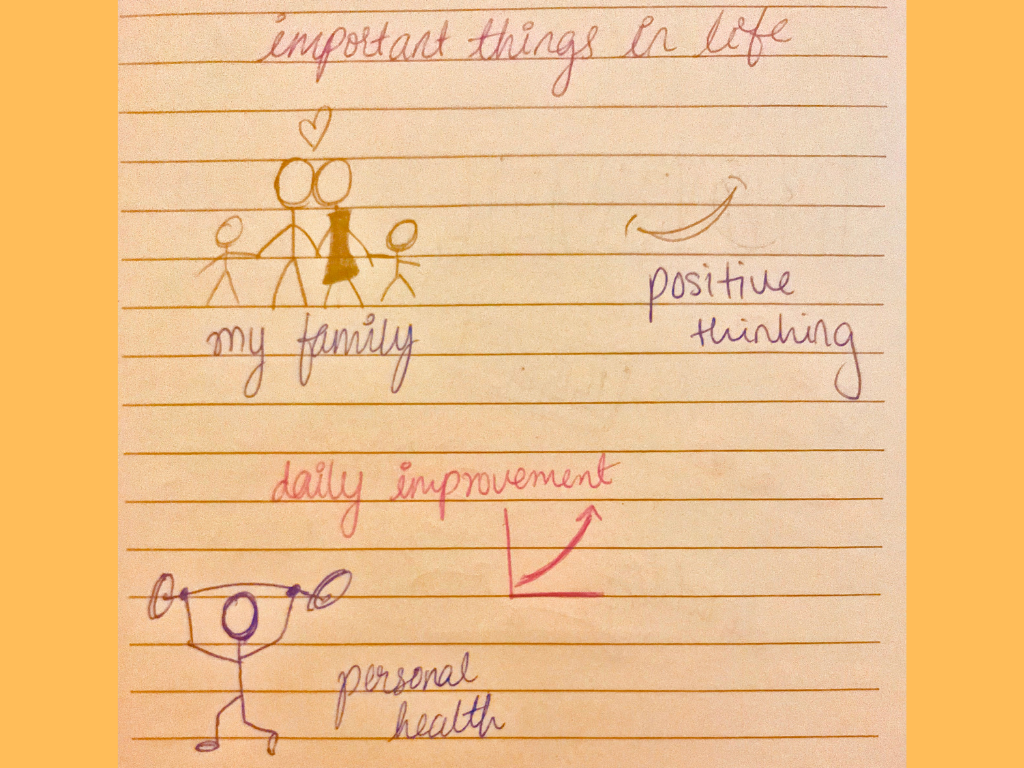 important things in life
my family
positive
thinking
daily improvement
personal
health